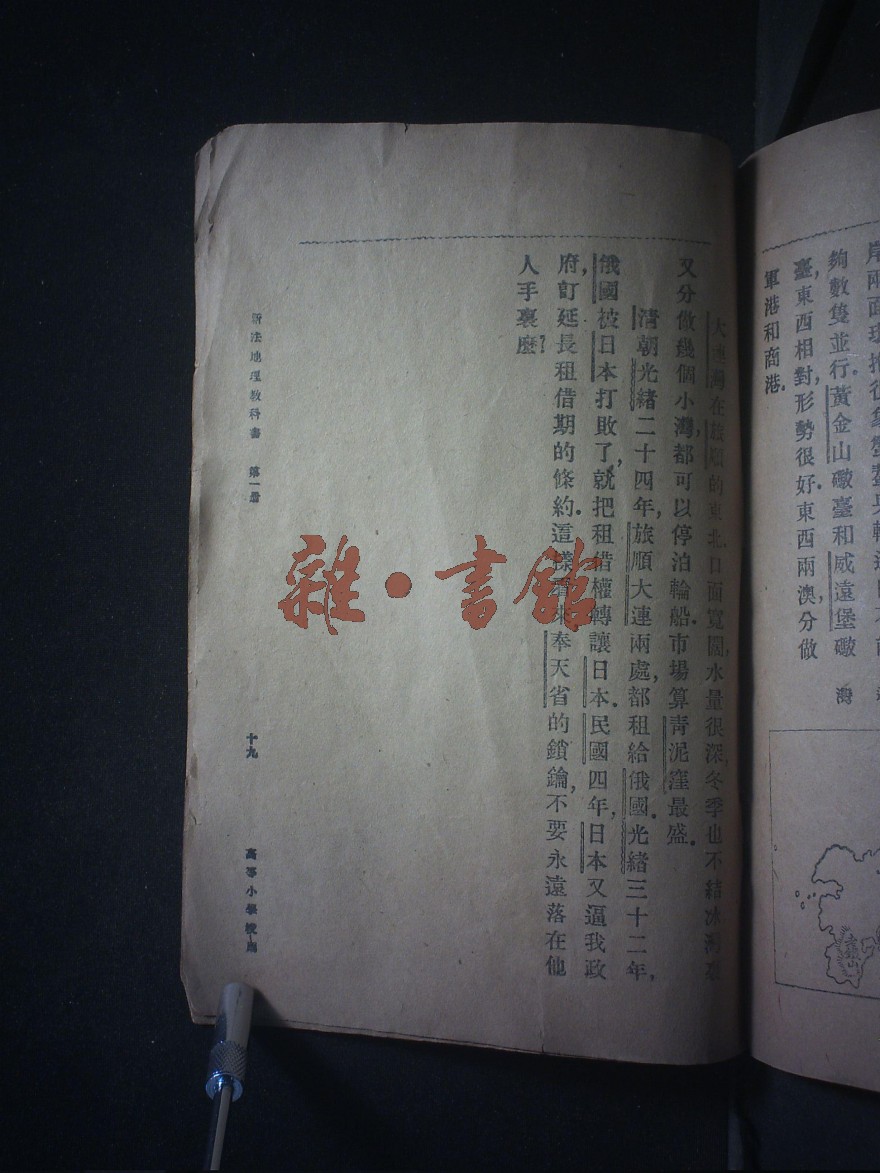 岸兩面環抱很象
夠數隻並行.黃金山礮臺和威遠堡礮
臺,東西相對,形勢很好.東西兩澳,分做
軍港和商港.
灣
老鐵山
大連灣在旅順的東北,口面寬闊,水量很深,冬季也不結冰
又分做幾個小灣,都可以停泊輪船.市場算青泥窪最盛.
清朝光緒二十四年,旅順大連兩處,都租給俄國.光緒三十二年,
俄國被日本打敗了,就把租借權轉讓日本.民國四年,日本又逼我政
府,訂延長租借期的條約.這樣看來,奉天省的鎖鑰,不要永遠落在他
人手裏麽?
新法地理教科書 第一册 十九 高等小學校用
雜·書館